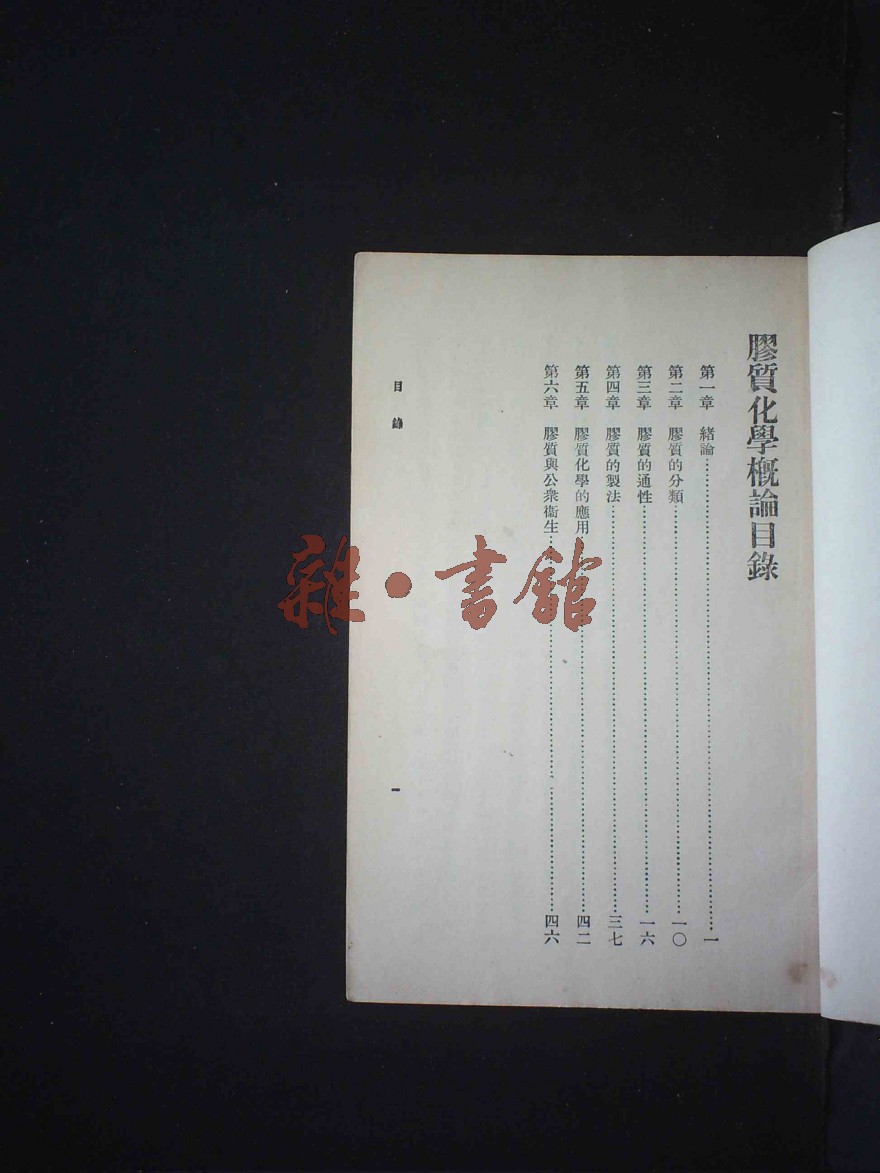 膠質化學概論目錄
第一章　緒論……………………一
第二章　膠質的分類……………………一〇
第三章　膠質的通性……………………一六
第四章　膠質的製法……………………三七
第五章　膠質化學的應用……………………四二
第六章　膠質與公衆衞生……………………四六
目錄
一
雜・書館